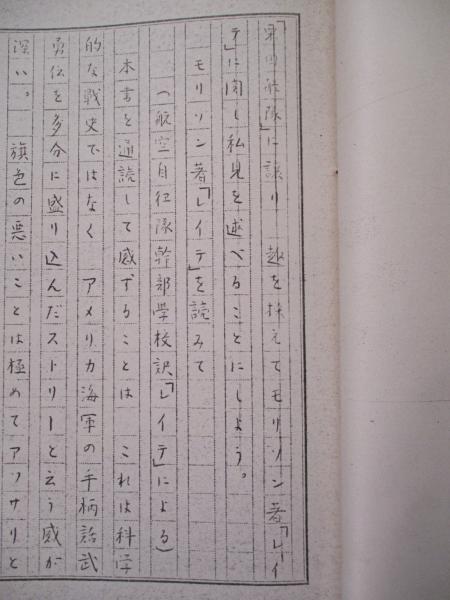 栗田艦隊」に譲り 趣を換えてモリソン著「レイ
テ」に関し私見を述べることにしよう。
モリソン著「レイテ」を読みて
(航空自衛隊幹部学校訳「レイテ」による)
本書を通読して感ずることは これは科学
的な戦史ではなく アメリカ海軍の手柄話武
勇伝を多分に盛り込んだストリーと云う感が
深い。 旗色の悪いことは極めてアッサリと